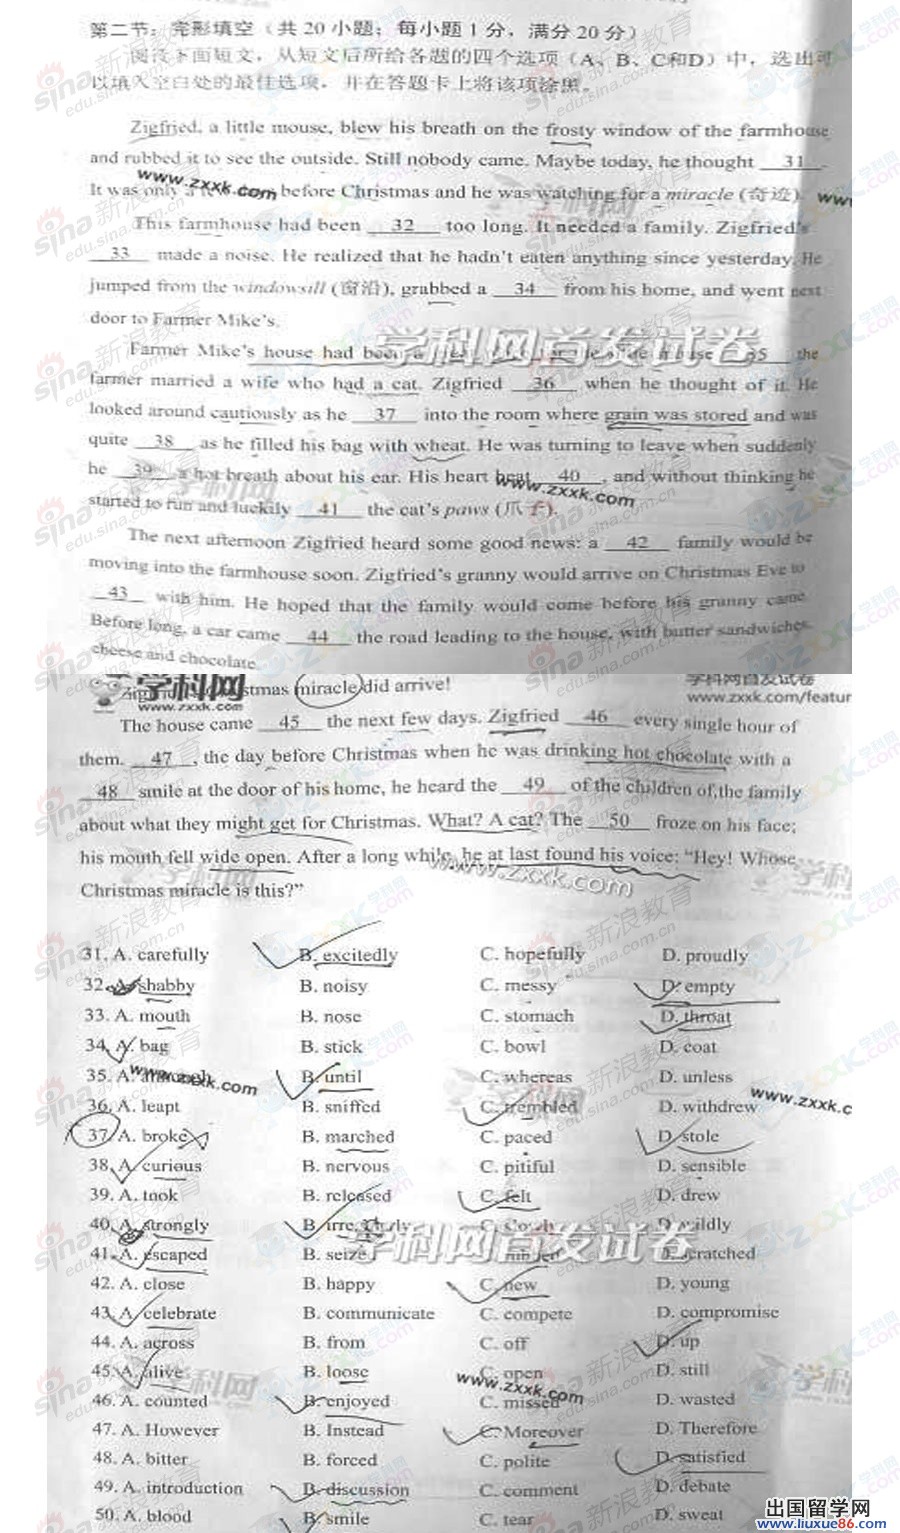 第二节：完形填空（共20小题；每小题1分，满分20分）
阅读下面短文，从短文后所给各题的四个选项（A、B、C和D）中，选出可
以填入空白处的最佳选项，并在答题卡上将该项涂黑。
Zigfried, a little mouse, blew his breath on the frosty window of the farmhouse
and rubbed it to see the outside. Still nobody came. Maybe today, he thought 31 .
It was only a before Christmas and he was watching for a miracle (奇迹).
This farmhouse had been 32 too long. It needed a family. Zigfried's
33 made a noise. He realized that he hadn't eaten anything since yesterday. He
jumped from the windowsill (窗沿), grabbed a 34 from his home, and went next
door to Farmer Mike's.
Farmer Mike's house had been a 35 the
farmer married a wife who had a cat. Zigfried 36 when he thought of it. He
looked around cautiously as he 37 into the room where grain was stored and was
quite 38 as he filled his bag with wheat. He was turning to leave when suddenly
he 39 a hot breath about his ear. His heart beat 40 , and without thinking he
started to run and luckily 41 the cat's paws (爪子).
The next afternoon Zigfried heard some good news: a 42 family would be
moving into the farmhouse soon. Zigfried's granny would arrive on Christmas Eve to
43 with him. He hoped that the family would come before his granny came.
Before long, a car came 44 the road leading to the house, with butter sandwiches,
cheese and chocolate.
Christmas miracle did arrive!
The house came 45 the next few days. Zigfried 46 every single hour of
them. 47 , the day before Christmas when he was drinking hot chocolate with a
48 smile at the door of his home, he heard the 49 of the children of the family
about what they might get for Christmas. What? A cat? The 50 froze on his face;
his mouth fell wide open. After a long while, he at last found his voice: "Hey! Whose
Christmas miracle is this?"
31. A. carefully B. excitedly C. hopefully D. proudly
32. A. shabby B. noisy C. messy D. empty
33. A. mouth B. nose C. stomach D. throat
34. A. bag B. stick C. bowl D. coat
35. A. B. until C. whereas D. unless
36. A. leapt B. sniffed C. trembled D. withdrew
37. A. broke B. marched C. paced D. stole
38. A. curious B. nervous C. pitiful D. sensible
39. A. took B. released C. felt D. drew
40. A. strongly B. C. D. wildly
41. A. escaped B. seized C. D. scratched
42. A. close B. happy C. new D. young
43. A. celebrate B. communicate C. compete D. compromise
44. A. across B. from C. off D. up
45. A. alive B. loose C. open D. still
46. A. counted B. enjoyed C. missed D. wasted
47. A. However B. Instead C. Moreover D. Therefore
48. A. bitter B. forced C. polite D. satisfied
49. A. introduction B. discussion C. comment D. debate
50. A. blood B. smile C. tear D. sweat
学科网首发试卷
www.zxxk.com
出国留学网
www.liuxue86.com